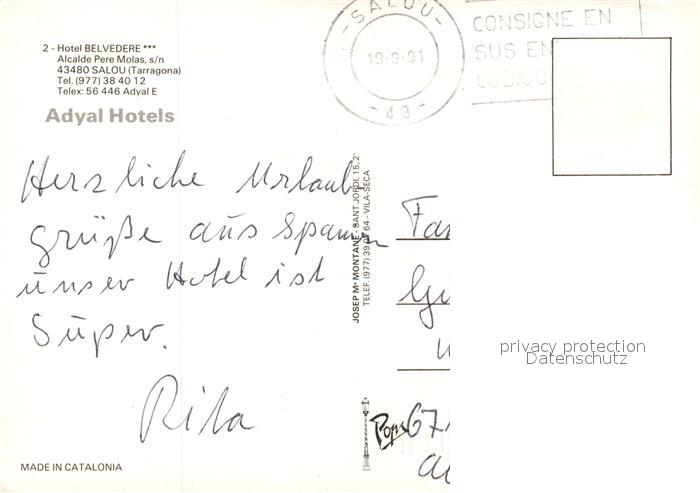 2 - Hotel BELVEDERE ***
Alcalde Pere Molas, s/n
43480 SALOU (Tarragona)
Tel. (977) 38 40 12
Telex: 56 446 Adyal E
Adyal Hotels
- SALOU -
19-9-91
- 43 -
CONSIGNE EN
SUS EN
CODIGO
Herzliche Urlaub
grüße aus Spanien
unser Hotel ist
Super.
Rita
MADE IN CATALONIA
JOSEP Mª MONTANÉ - SANT JORDI, 15, 2
TELEF. (977) 39 64 - VILA-SECA
Fa
Gu
67
privacy protection
Datenschutz